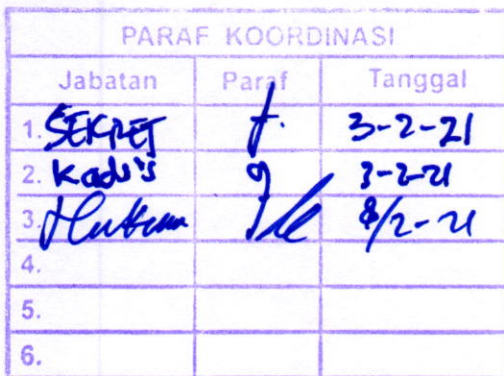 PARAF KOORDINASI
Jabatan Paraf Tanggal
1. SEKRET 3-2-21
2. Kadis 3-2-21
3. Hukum 8/2-21
4.
5.
6.